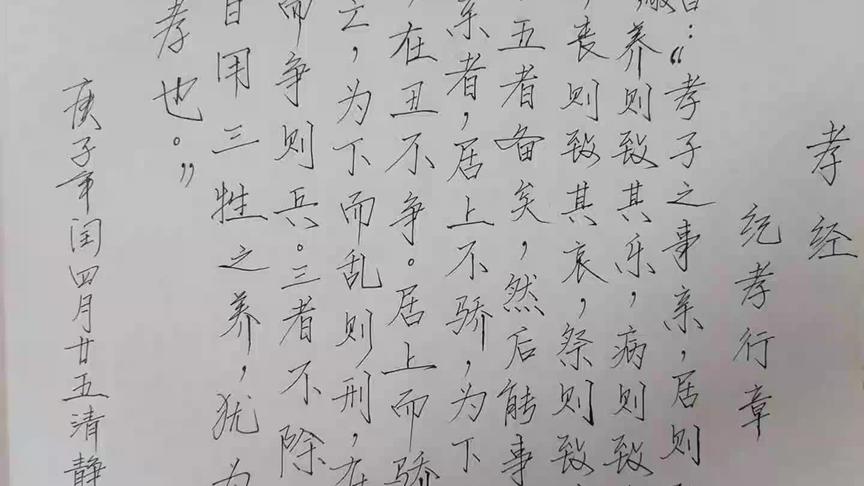 孝经
纪孝行章
曰：“孝子之事亲，居则
养则致其乐，病则致
丧则致其哀，祭则致
五者备矣，然后能事
亲者，居上不骄，为下
在丑不争。居上而骄
亡，为下而乱则刑，在
而争则兵。三者不除
日用三牲之养，犹为
孝也。”
庚子年闰四月廿五清静